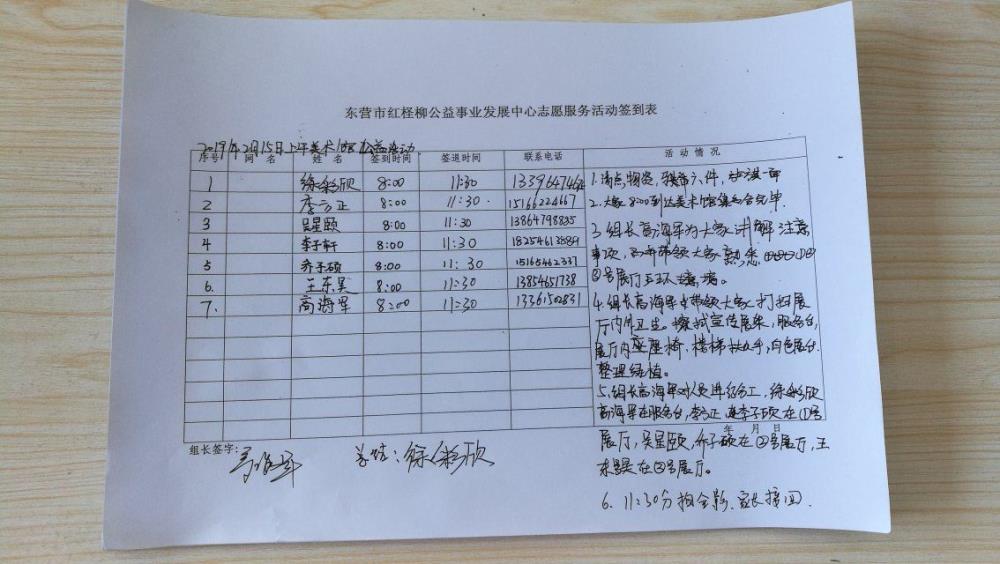 东营市红柽柳公益事业发展中心志愿服务活动签到表
2019年2月15日上午美术馆公益活动
序号 网名 姓名 签到时间 签退时间 联系电话 活动情况
1 徐彩欣 8:00 11:30
2 李方正 8:00 11:30 15166224667
3 吴星颐 8:00 11:30 13864798835
4 李子轩 8:00 11:30 18254613889
5 乔子硕 8:00 11:30 15165462337
6. 王东昊 8:00 11:30 13854651738
7. 高海军 8:00 11:30
1.清点物资,
2.大家8:00到达美术馆集合完毕
3.组长高海军为大家讲解注意
事项,而并带领大家熟悉
③号展厅及环境。
4.组长高海军带领大家打扫展
厅内外卫生。擦拭宣传展架,服务台,
展厅内座椅、楼梯扶手,白色展台.
整理绿植。
5.组长高海军对人员进行分工,徐彩欣
高海军在服务台,李方正 李子 在①号
年 月 日
展厅,吴星颐,乔子硕在②号展厅,王
东昊在③号展厅。
6. 11:30分拍合影、家长接回
组长签字: 高海军 总结:徐彩欣